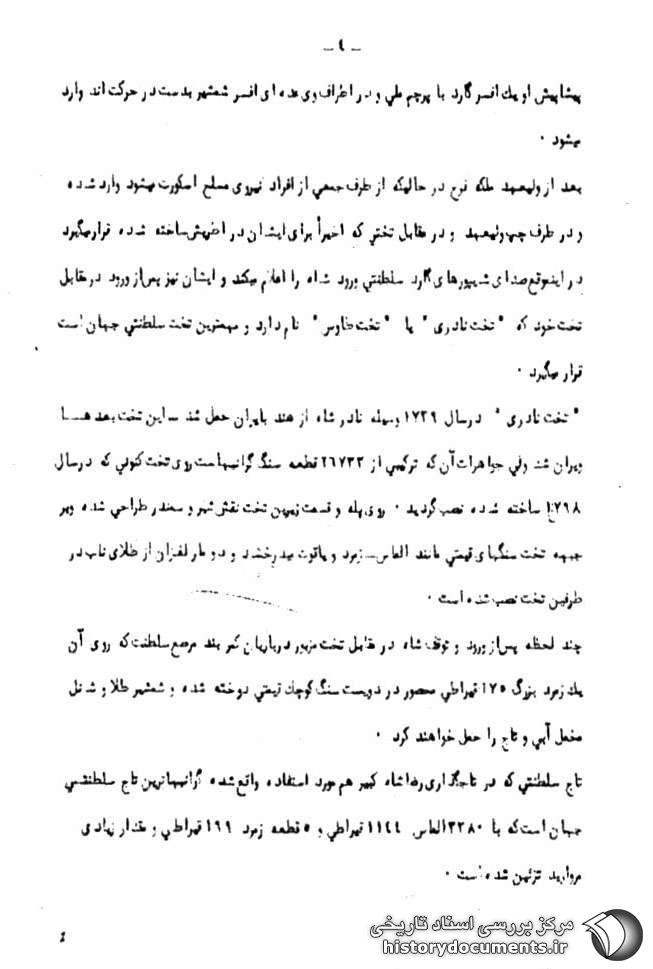 ـ ٤ ـ
پیشاپیش او یك افسر گارد با پرچم ملي و در اطراف وی عده ای افسر شمشیر بدست در حرکت اند وارد
میشود ٠
بعد از ولیعهد ملکه فرح در حالیکه از طرف جمعي از افراد نیروی مسلح اسکورت میشود وارد شده
و در طرف چپ ولیعهد و در مقابل تختي که اخیراً برای ایشان در اطریش ساخته شده قرار میگیرد
در اینموقع صدای شیپورهای گارد سلطنتي ورود شاه را اعلام میکند و ایشان نیز پس از ورود در مقابل
تخت خود که " تخت نادری " یا " تخت طاوس " نام دارد و مهمترین تخت سلطنتي جهان است
قرار میگیرد ٠
" تخت نادری " در سال ١٧٣٩ وسیله نادر شاه از هند بایران حمل شد ـ این تخت بعد هـــا
ویران شد ولي جواهرات آن که ترکیبي از ٢٦٧٣٣ قطعه سنگ گرانبهاست روی تخت کنوني که در سال
١٧٩٨ ساخته شده نصب گردید ٠ روی پله و قسمت زیرین تخت نقش شیر و سمندر طراحي شده و بر
جبهه تخت سنگهای قیمتي مانند الماس ـ زمرد و یاقوت میدرخشد و دو مار لغزان از طلای ناب در
طرفین تخت نصب شده است ٠
چند لحظه پس از ورود و توقف شاه در مقابل تخت مزبور درباریان کمر بند مرصع سلطنت که روی آن
یك زمرد بزرگ ١٧٥ قیراطي محصور در دویست سنگ کوچك قیمتي دوخته شده و شمشیر طلا و شنل
مخمل آبي و تاج را حمل خواهند کرد ٠
تاج سلطنتي که در تاجگذاری رضا شاه کبیر هم مورد استفاده واقع شده گرانبهاترین تاج سلطنتـــي
جهان است که با ٣٣٨٠ الماس ١١٤٤ قیراطي و ٥ قطعه زمرد ١٩٩ قیراطي و مقدار زیادی
مروارید تزئین شده است ٠
مرکز بررسی اسناد تاریخی
historydocuments.ir